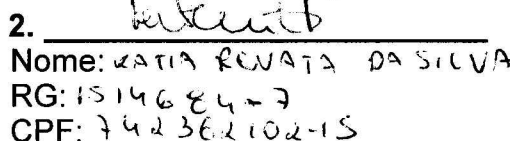 2.
Nome: KATIA RENATA DA SILVA
RG: 1514684-7
CPF: 742362102-15